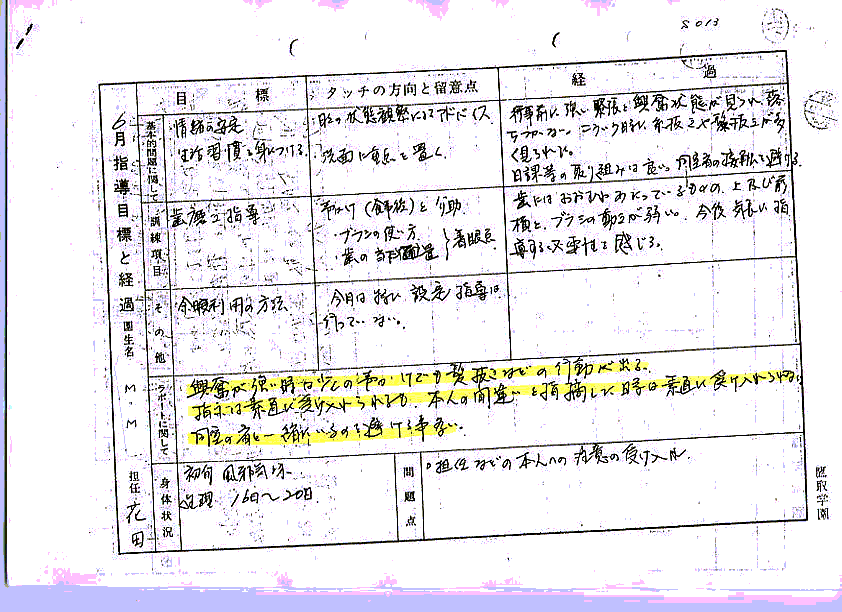 S013
6月指導目標と経過
園生名 M.M
担任 花田
目標
タッチの方向と留意点
経過
基本的問題に関して
情緒の安定
生活習慣を身につける
日々の状態観察によるアドバイス
洗面に重点を置く
行事前に強い緊張と興奮状態が見られ落
ちつかない。こういう時に糸抜きや髪抜きが多
く見られた。
日課等の取り組みは良い。同室者の接触を避ける。
訓練項目
歯磨き指導
声かけ(食事後)と介助
・ブラシの使い方
・歯の
着眼点
歯にはおおむねあたっているものの、上及び前
横と、ブラシの動きが弱い。今後長い指
導する必要性を感じる。
その他
金銭利用の方法
今月は特に設定指導は
行っていない。
ラポートに関して
興奮が強い時は少しの声かけでも髪抜きなどの行動が出る。
指示は素直に受け入れられるも、本人の間違いを指摘した時は素直に受け入れられない。
同室の者と一緒にいるのを避ける事多い。
身体状況
初旬 風邪気味
生理 16日〜20日
問題点
○担任などの本人への注意の受け入れ
鷹取学園